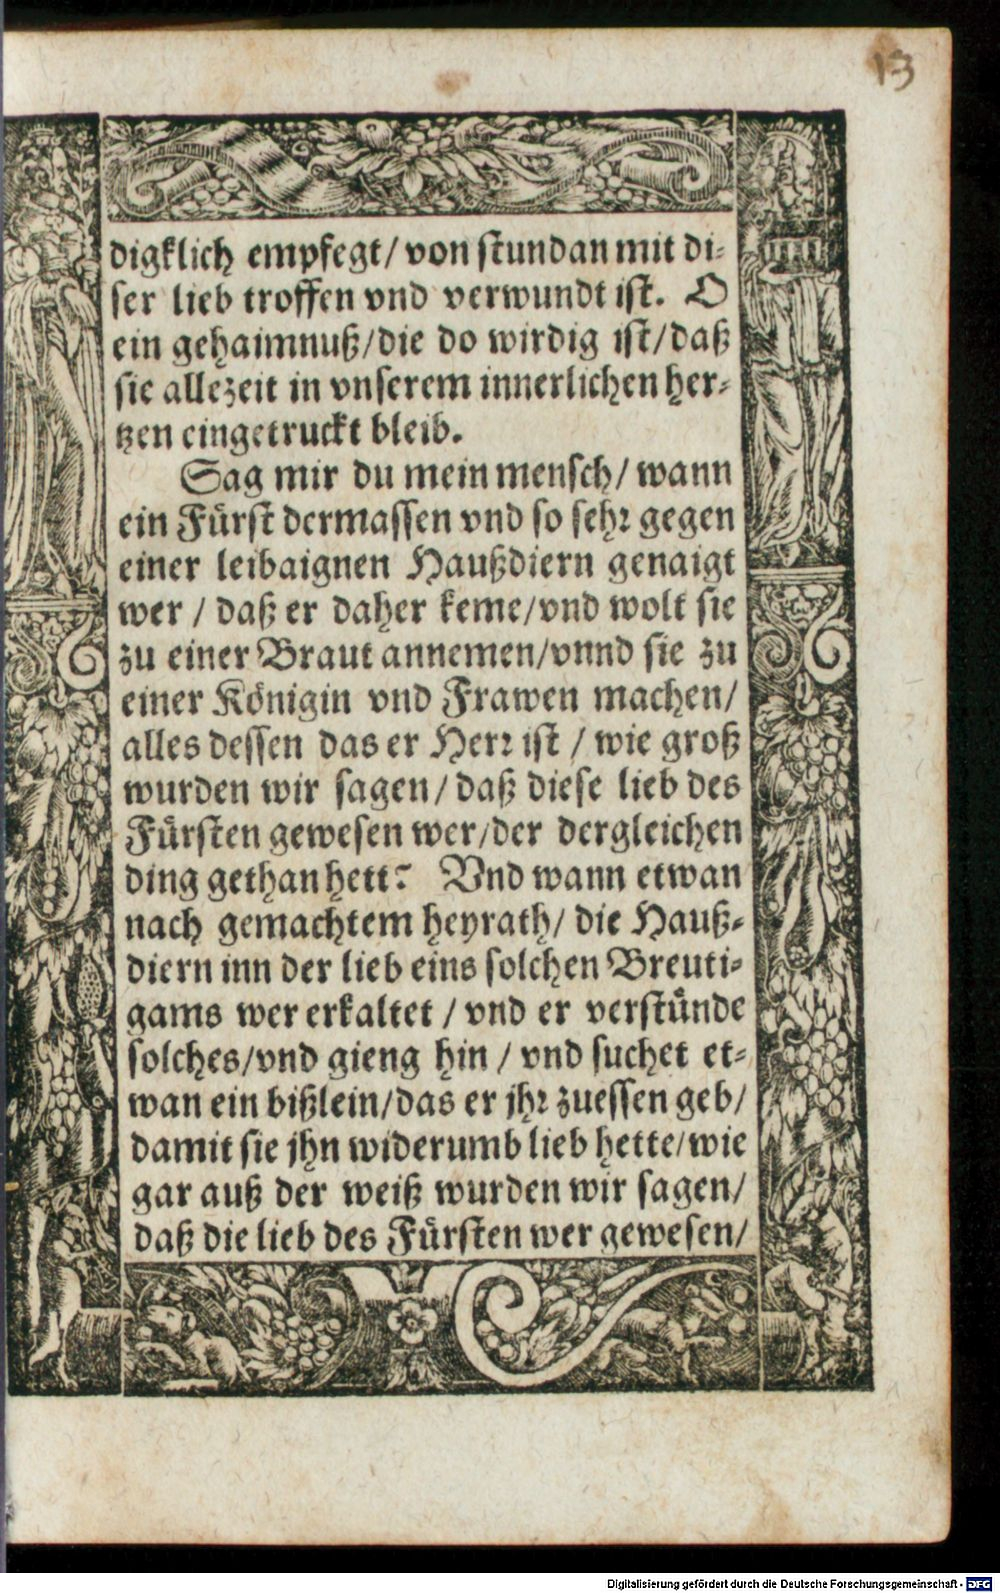 13
digklich empfegt/ von stundan mit di-
ser lieb troffen vnd verwundt ist. O
ein gehaimnuß/die do wirdig ist/daß
sie allezeit in vnserem innerlichen her-
tzen eingetruckt bleib.
Sag mir du mein mensch/ wann
ein Fürst dermassen vnd so sehr gegen
einer leibaignen Haußdiern genaigt
wer / daß er daher keme/vnd wolt sie
zu einer Braut annemen/vnnd sie zu
einer Königin vnd Frawen machen/
alles dessen das er Herr ist / wie groß
wurden wir sagen/ daß diese lieb des
Fürsten gewesen wer/der dergleichen
ding gethan hett? Vnd wann etwan
nach gemachtem heyrath/ die Hauß-
diern inn der lieb eins solchen Breuti-
gams wer erkaltet / vnd er verstünde
solches/vnd gieng hin / vnd suchet et-
wan ein bißlein/das er jhr zuessen geb/
damit sie jhn widerumb lieb hette/wie
gar auß der weiß wurden wir sagen/
daß die lieb des Fürsten wer gewesen/
Digitalisierung gefördert durch die Deutsche Forschungsgemeinschaft - DFG